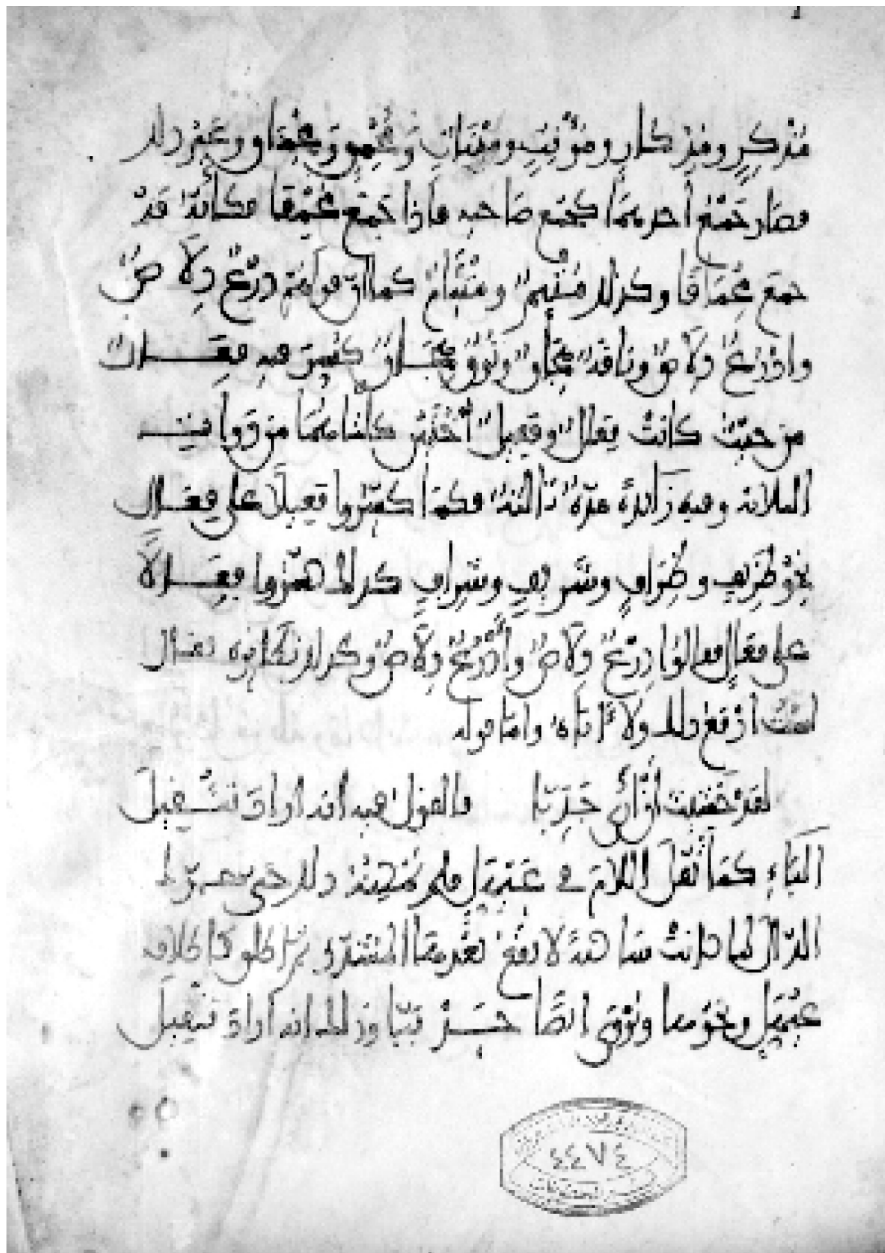 مُذْكِرٍ ومِذكارٍ ومُؤْنِثٍ ومِئْناثٍ ومُحْمِقٍ ومِحْماقٍ وغير ذلك
فصار جَمْعُ أحدهما كجمع صاحبه فإذا جَمَعَ مُحْمِقًا فكأنه قَدْ
جمع مِحْمَاقًا وكذلك مُتْئِمٌ ومِتْآمٌ كما أنّ قولهم دِرْعٌ دِلَاصٌ
وأدْرُعٌ دِلَاصٌ وناقةٌ هِجَانٌ ونُوقٌ هِجَانٌ كُسِّرَ فيه فِعَالٌ
من حيثُ كانتْ فِعَالٌ وفَعِيلٌ أُخْتَيْنِ كلتاهما من ذَواتِ
الثلاثة وفيه زَائدةٌ مَدّةٌ ثالثةٌ فكما كسّروا فَعِيلًا على فِعَالٍ
نحوَ ظَرِيفٍ وظِرَافٍ وشَرِيفٍ وشِرَافٍ كذلك كسّروا فِعَالًا
على فِعَالٍ فقالوا دِرْعٌ دِلَاصٌ وأَدْرُعٌ دِلَاصٌ وكذلك نظائره
لستُ أدْفَعُ ذلك ولا آباه وأما قوله
لقد خَشِيت أنْ أرَى جَدَبّا فالقول فيه أنه أراد تثقيل
الباءِ كما ثقّل اللامَ في عَيْهَلّ فلم يُمكِنْه ذلك حتى حرّك
الدّالَ لمّا كانتْ ساكنةً لا يقعُ بعدها المشدّد ثم أطلق كإطلاقه
عَيْهَلّ ونحوها ويُرْوَى أيضًا جَدْبَبّا وذلك أنه أراد تثقيل
٤٤٧٤